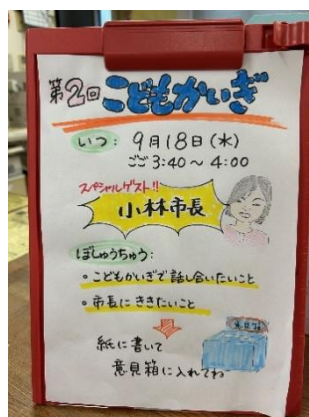 第2回こどもかいぎ
いつ: 9月18日(水)
ごご 3:40～4:00
スペシャルゲスト!!
小林市長
ぼしゅうちゅう:
・こどもかいぎで話し合いたいこと
・市長にききたいこと
紙に書いて
意見箱に入れてね